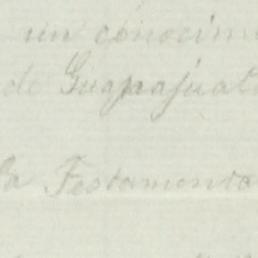 un conocim
de Guanajuat
la Testamenta